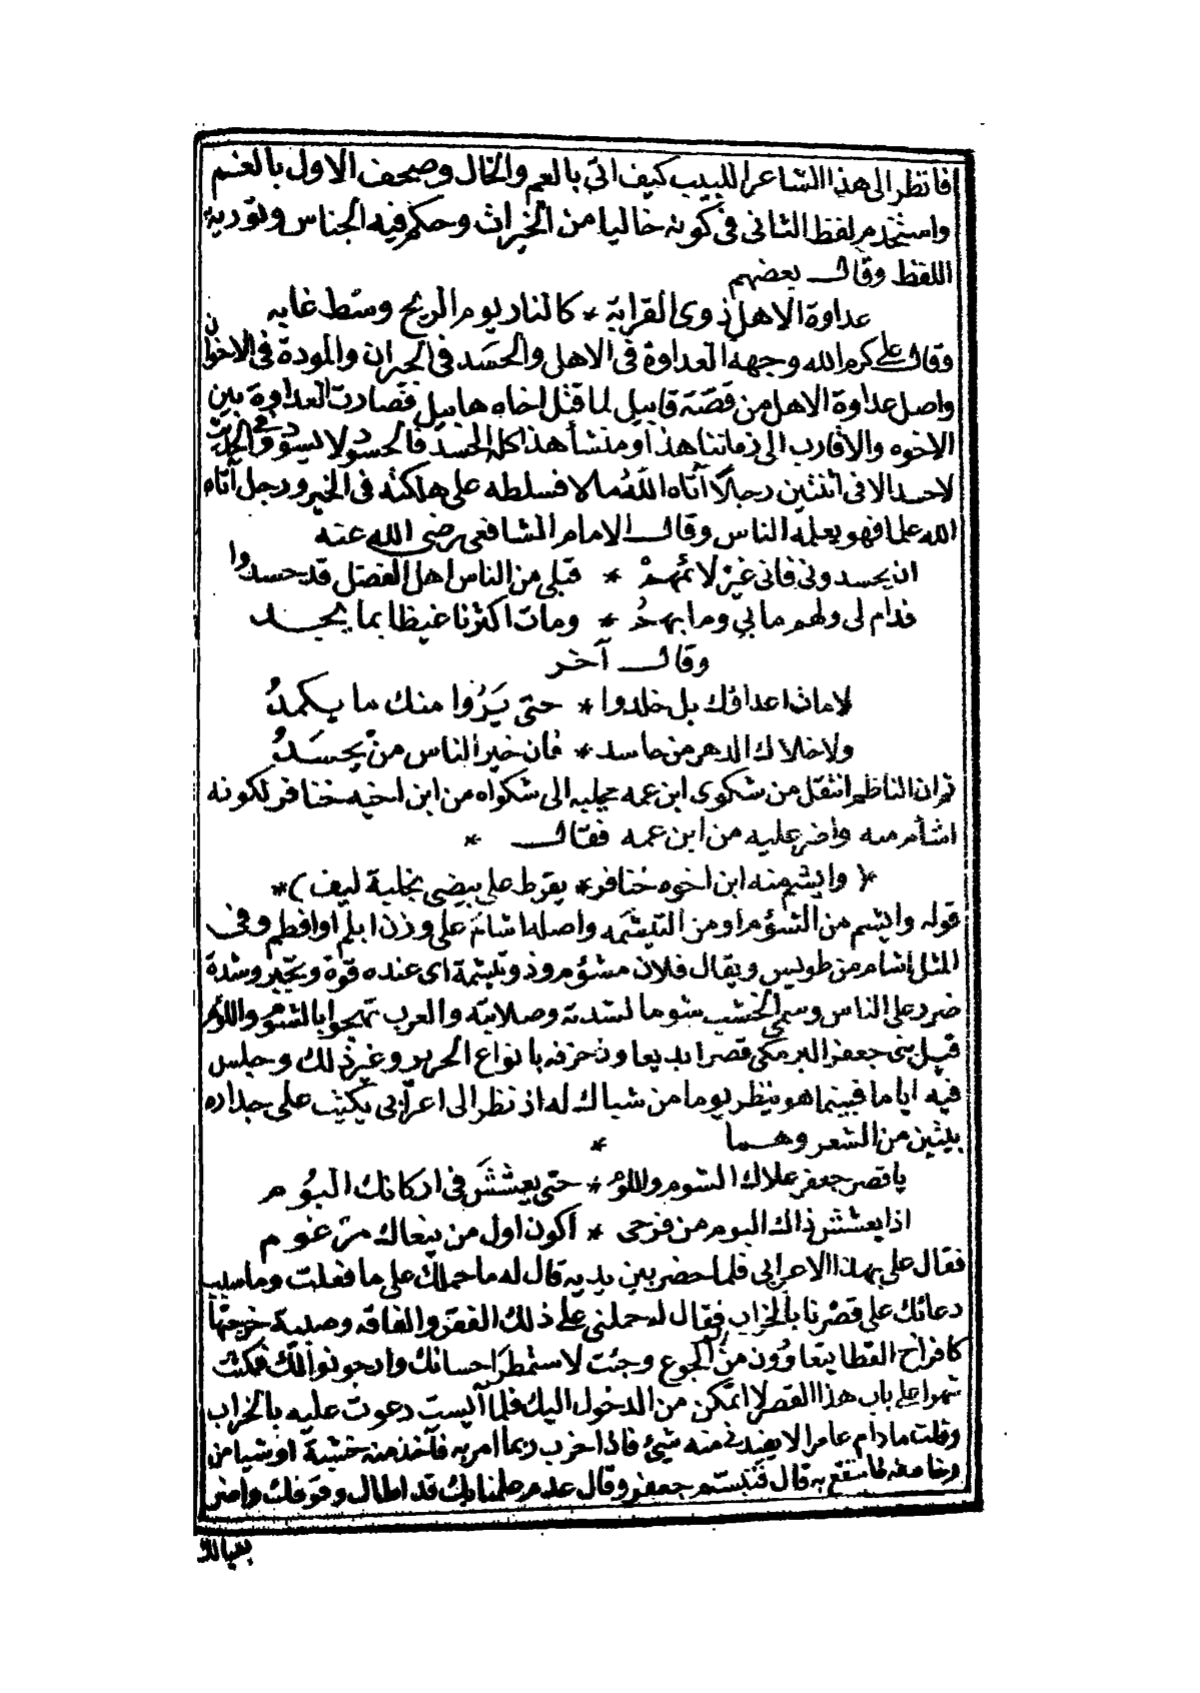 فانظر الى هذا الشاعر اللبيب كيف اتى بالعم والخال وصحف الاول بالغم
واستخدم لفظ الثانى فى كونه خاليا من الخيرات وحكم فيه الجناس وتورية
اللفظ وقال بعضهم
عداوة الاهل ذوى القرابة * كالنار يوم الريح وسط غابه
وقال على كرم الله وجهه العداوة فى الاهل والحسد فى الجيران والمودة فى الاخوان
واصل عداوة الاهل من قصة قابيل لما قتل اخاه هابيل فصارت العداوة بين
الاخوه والاقارب الى زماننا هذا ومنشأ هذا كله الحسد فالحسود لا يسود وفى الحديث
لا حسد الا فى اثنتين رجلا آتاه الله مالا فسلطه على هلكته فى الخير ورجل آتاه
الله علما فهو يعلمه الناس وقال الامام الشافعى رضى الله عنه
ان يحسدونى فانى غير لائمهم * قبلى من الناس اهل الفضل قد حسدوا
فدام لى ولهم ما بي وما بهم * ومات اكثرنا غيظا بما يجد
وقال آخر
لا مات اعداؤك بل خلدوا * حتى يروا منك ما يكمد
ولا خلاك الدهر من حاسد * فان خير الناس من يحسد
ثم ان الناظم انتقل من شكوى ابن عمه محيلبه الى شكواه من ابن اخيه خنافر لكونه
اشأم منه واضر عليه من ابن عمه فقال *
*( وايشم منه ابن اخوه خنافر * يقرط على بيضى بخلية ليف )*
قوله وايشم من الشؤم او من التيشمه واصله اشأم على وزن ابلم او افطم وفى
المثل اشأم من طويس ويقال فلان مشؤم وذو تيشمة اى عنده قوة وتجبر وشدة
ضرر على الناس وسمى الخشب شوما لشدته وصلابته والعرب تهجوا بالشؤم واللؤم
قيل بنى جعفر البرمكى قصرا بديعا وزخرفه بانواع الحرير وغير ذلك وجلس
فيه اياما فبينما هو ينظر يوما من شباك له اذ نظر الى اعرابى يكتب على جداره
بيتين من الشعر وهما *
يا قصر جعفر علاك الشوم واللوم * حتى يعشش فى اركانك البوم
اذا يعشش ذاك البوم من فرحى * اكون اول من ينعاك مرغوم
فقال على بهذا الاعرابى فلما حضر بين يديه قال له ما حملك على ما فعلت وما سبب
دعائك على قصرنا بالخراب فقال له حملنى على ذلك الفقر والفاقه وصبية خرجتها
كافراخ القطا يتعاوون من الجوع وجئت لاستمطر احسانك وارجو نوالك فمكثت
شهرا على باب هذا القصر لا اتمكن من الدخول اليك فلما آيست دعوت عليه بالخراب
وقلت ما دام عامرا لا يفيدنى منه شيئ فاذا خرب ربما امر به فآخذ منه خشبة او شيا من
رخامه فانتفع به قال فتبسم جعفر وقال عدم علمنا بك قد اطال وقوفك واضر
بعيالك